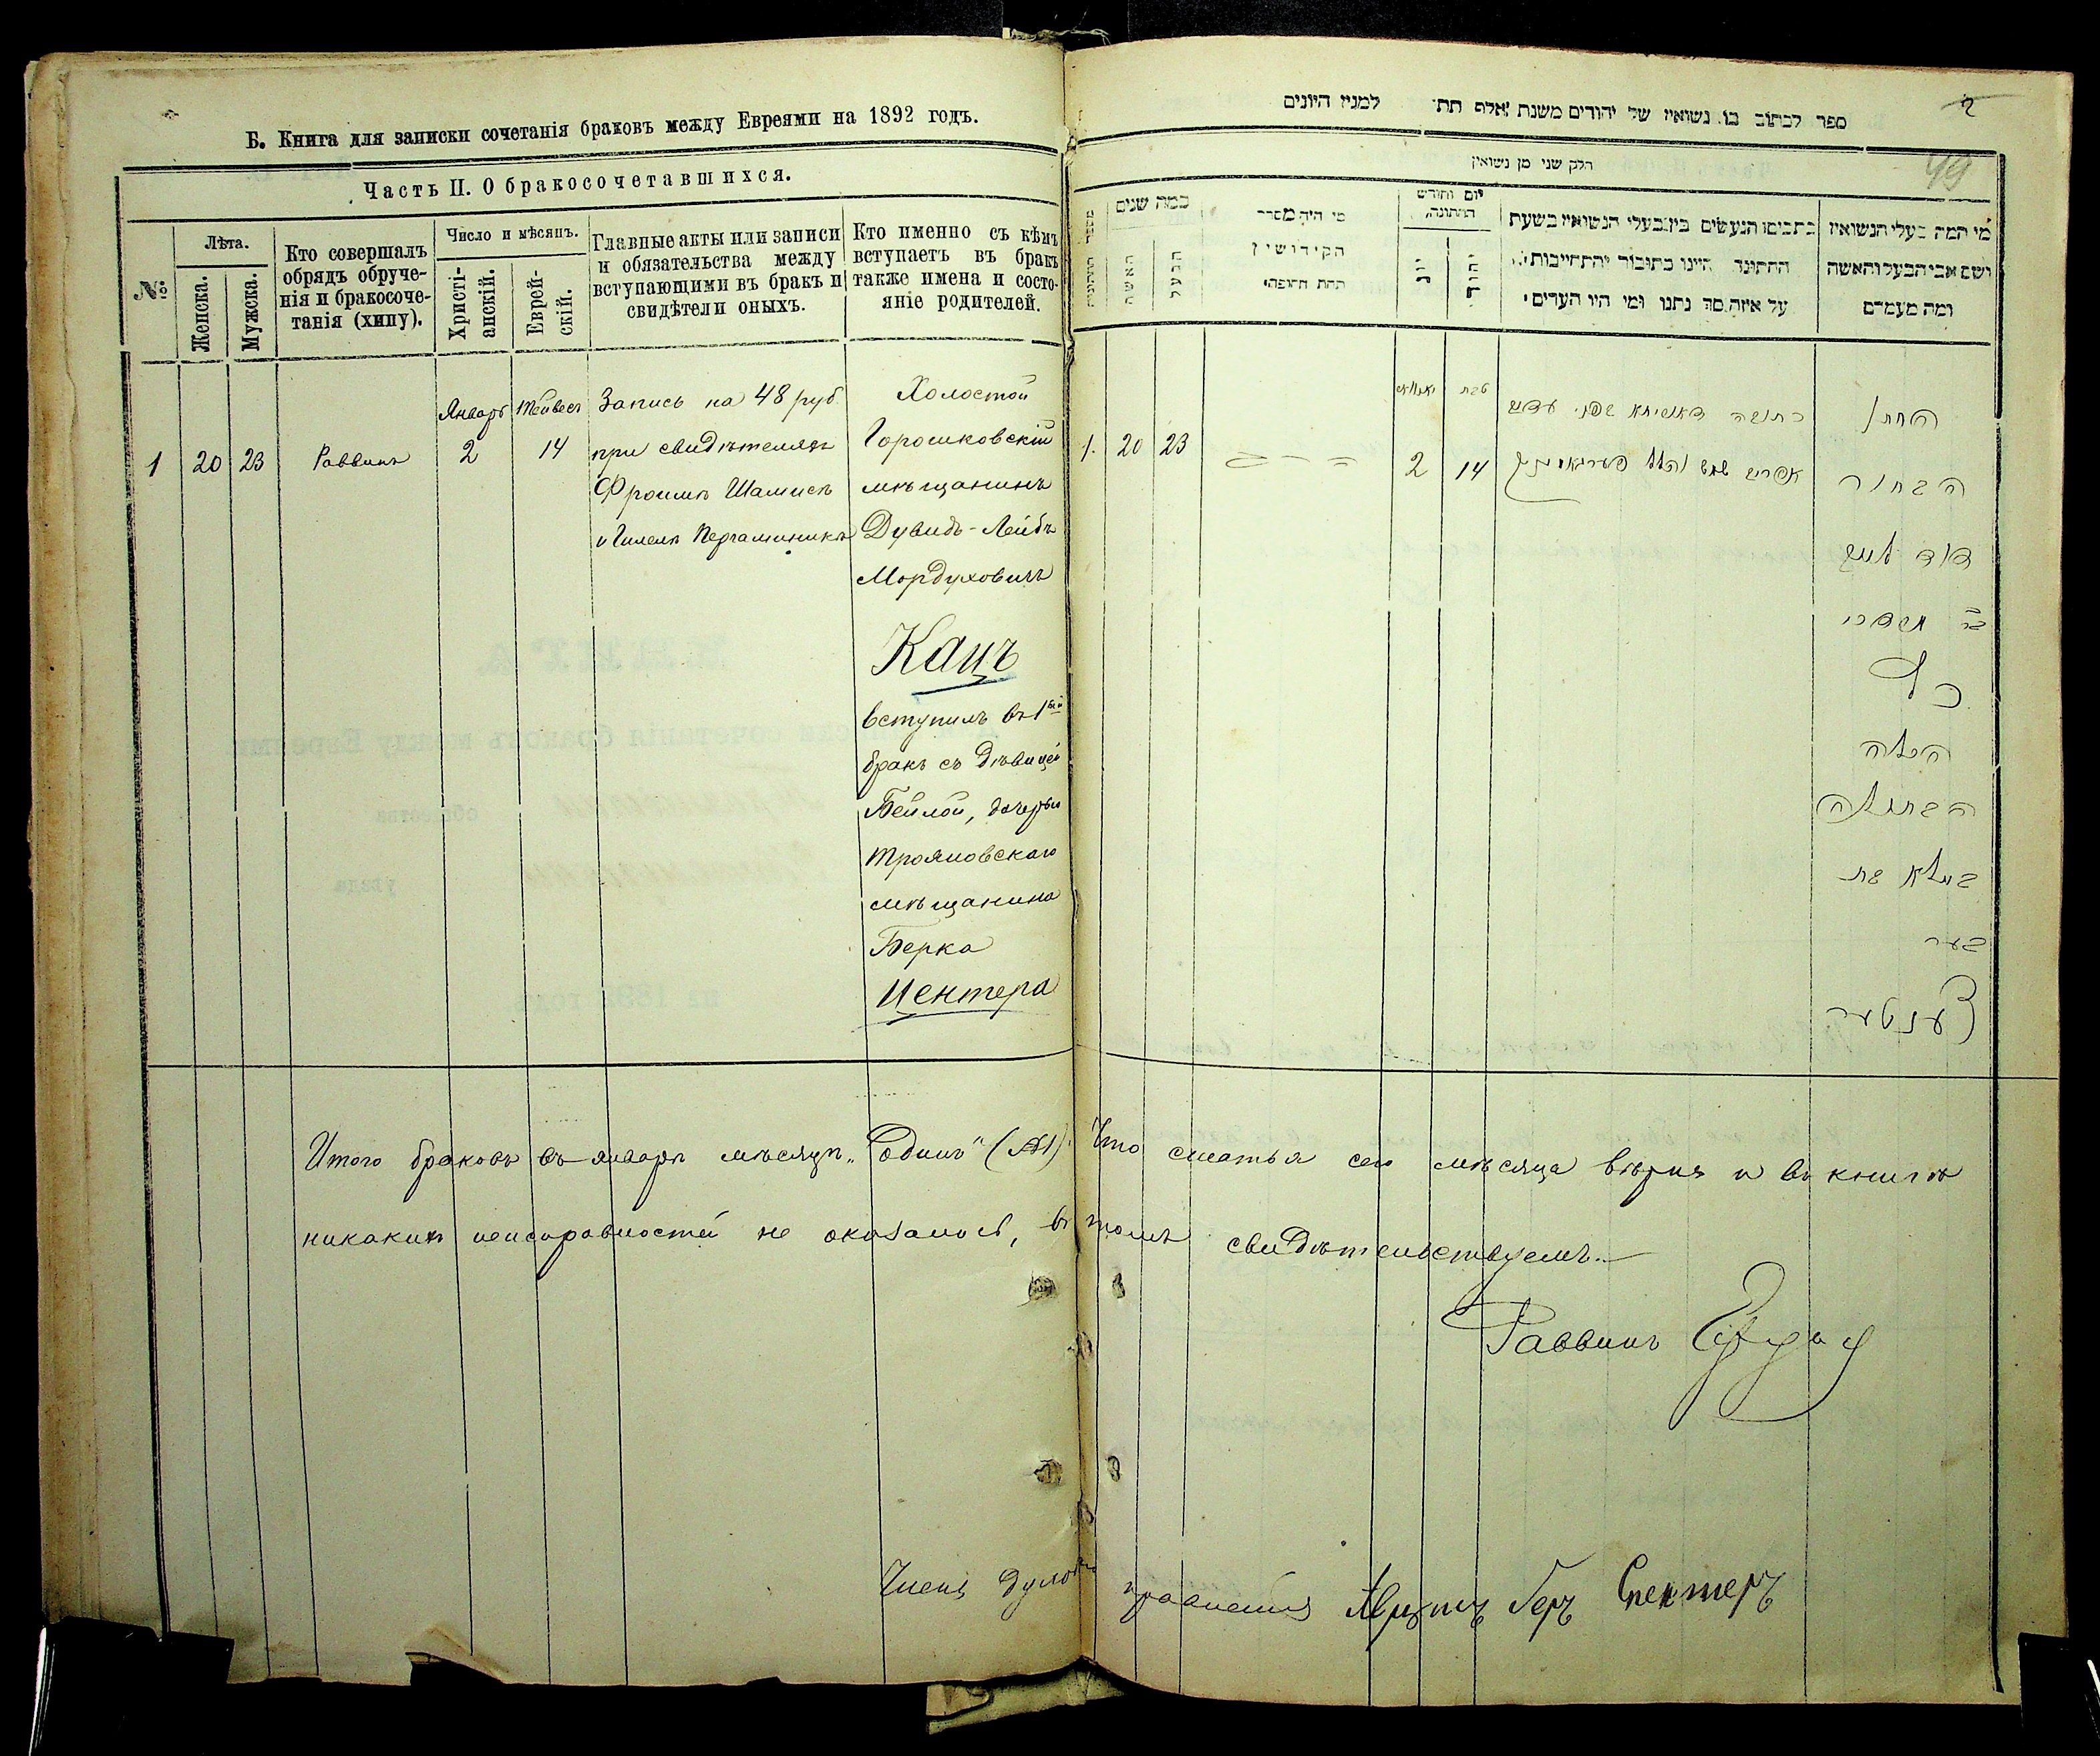 Б. Книга для записки сочетанія браковъ между Евреями на 1892 годъ.
Часть II. О бракосочетавшихся.
№
Лѣта.
Женска.
Мужска.
Кто совершалъ
обрядъ обруче-
нія и бракосоче-
танія (хипу).
Число и мѣсяцъ.
Христі-
анскій.
Еврей-
скій.
Главные акты или записи
и обязательства между
вступающими въ бракъ и
свидѣтели оныхъ.
Кто именно съ кѣмъ
вступаетъ въ бракъ
также имена и состо-
яніе родителей.
1
20
23
Раввинъ
Январь
2
Тейвесъ
14
Запись на 48 руб.
при свидѣтеляхъ
Фроимъ Шамисъ
и Гилель Пергаминикъ
Холостой
Горошковскій
мѣщанинъ
Дувидъ-Лейбъ
Мордуховичъ
Кацъ
вступилъ въ 1ый
бракъ съ дѣвицей
Бейлой, дочерью
трояновскаго
мѣщанина
Берка
Центера
Итого браковъ въ январѣ мѣсяцѣ „один" (№1). Что статья сего мѣсяца вѣрна и въ книгѣ
никакихъ неисправностей не оказалось, въ томъ свидѣтельствуемъ.
Раввинъ
Членъ духовн правленія Бер Спектеръ
2
49
ספר לכתוב בו נשואין של יהודים משנת אלף תת למנין היונים
חלק שני מן נשואין
מספר החתונות
כמה שנים
האשה
הבעל
מי היה מסדר
הקידושין
תחת החופה
יום וחודש
החתונה
יוני
יהודי
כתבים הנעשים בין בעלי הנשואין בשעת
החתונה היינו כתובות והתחייבות
על איזה סך נתנו ומי היו העדים
מי המה בעלי הנשואין
ושם אבי הבעל והאשה
ומה מעמדם
1.
20
23
יאנואר
2
טבת
14
החתן
הבחור
דוד לייב
ב״ר מרדכי
כ״ץ
הכלה
הבתולה
ביילא בת
בער
צענטער